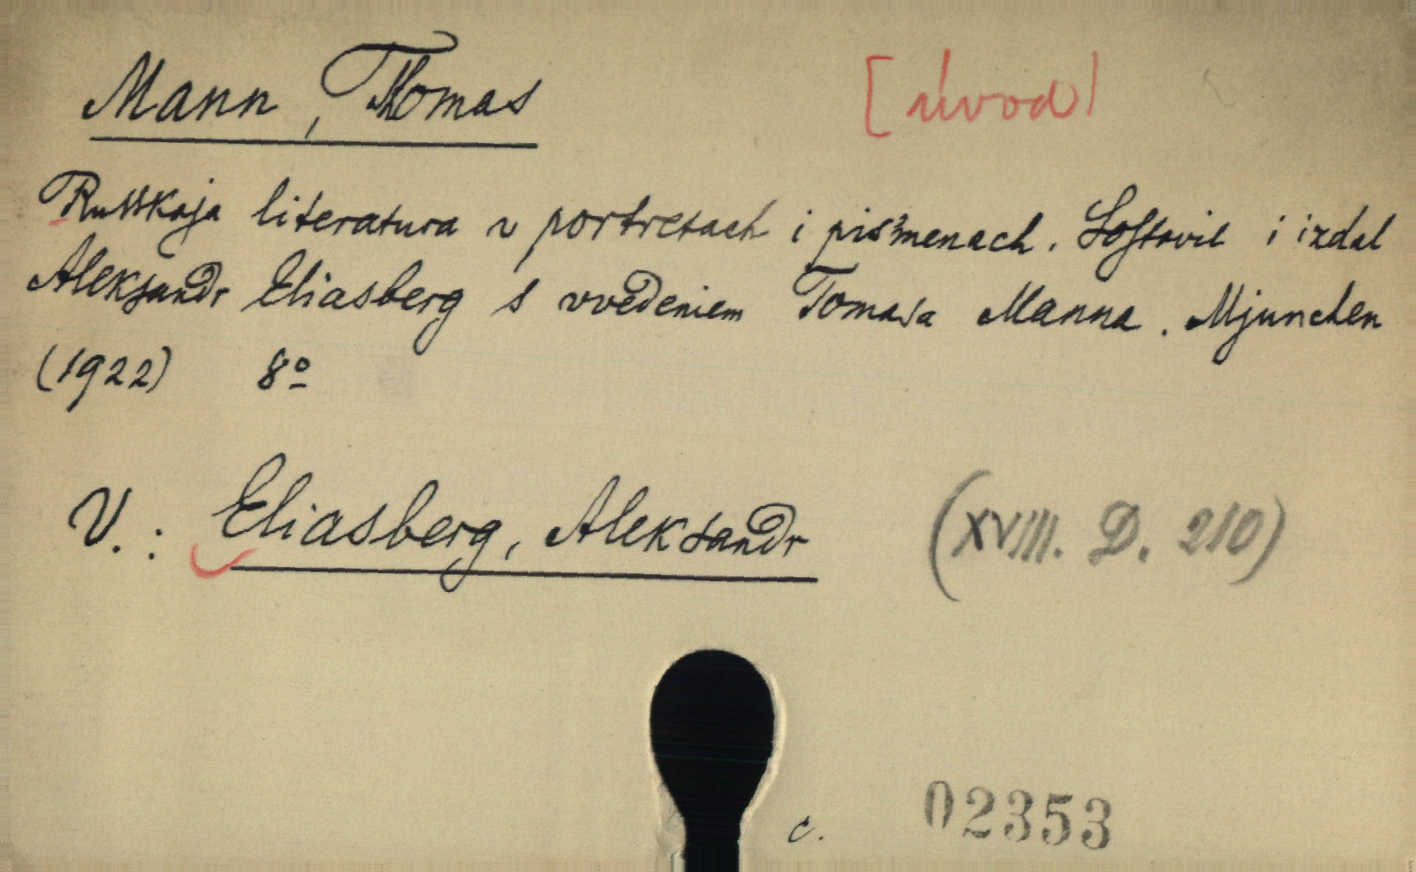 Mann, Thomas [úvod]
Russkaja literatura v portretach i piśmenach. Sostavil i izdal
Aleksandr Eliasberg s vvedeniem Tomasa Manna. Mjunchen
(1922) 8º
V.: Eliasberg, Aleksandr (XVIII. D. 210)
c. 02353